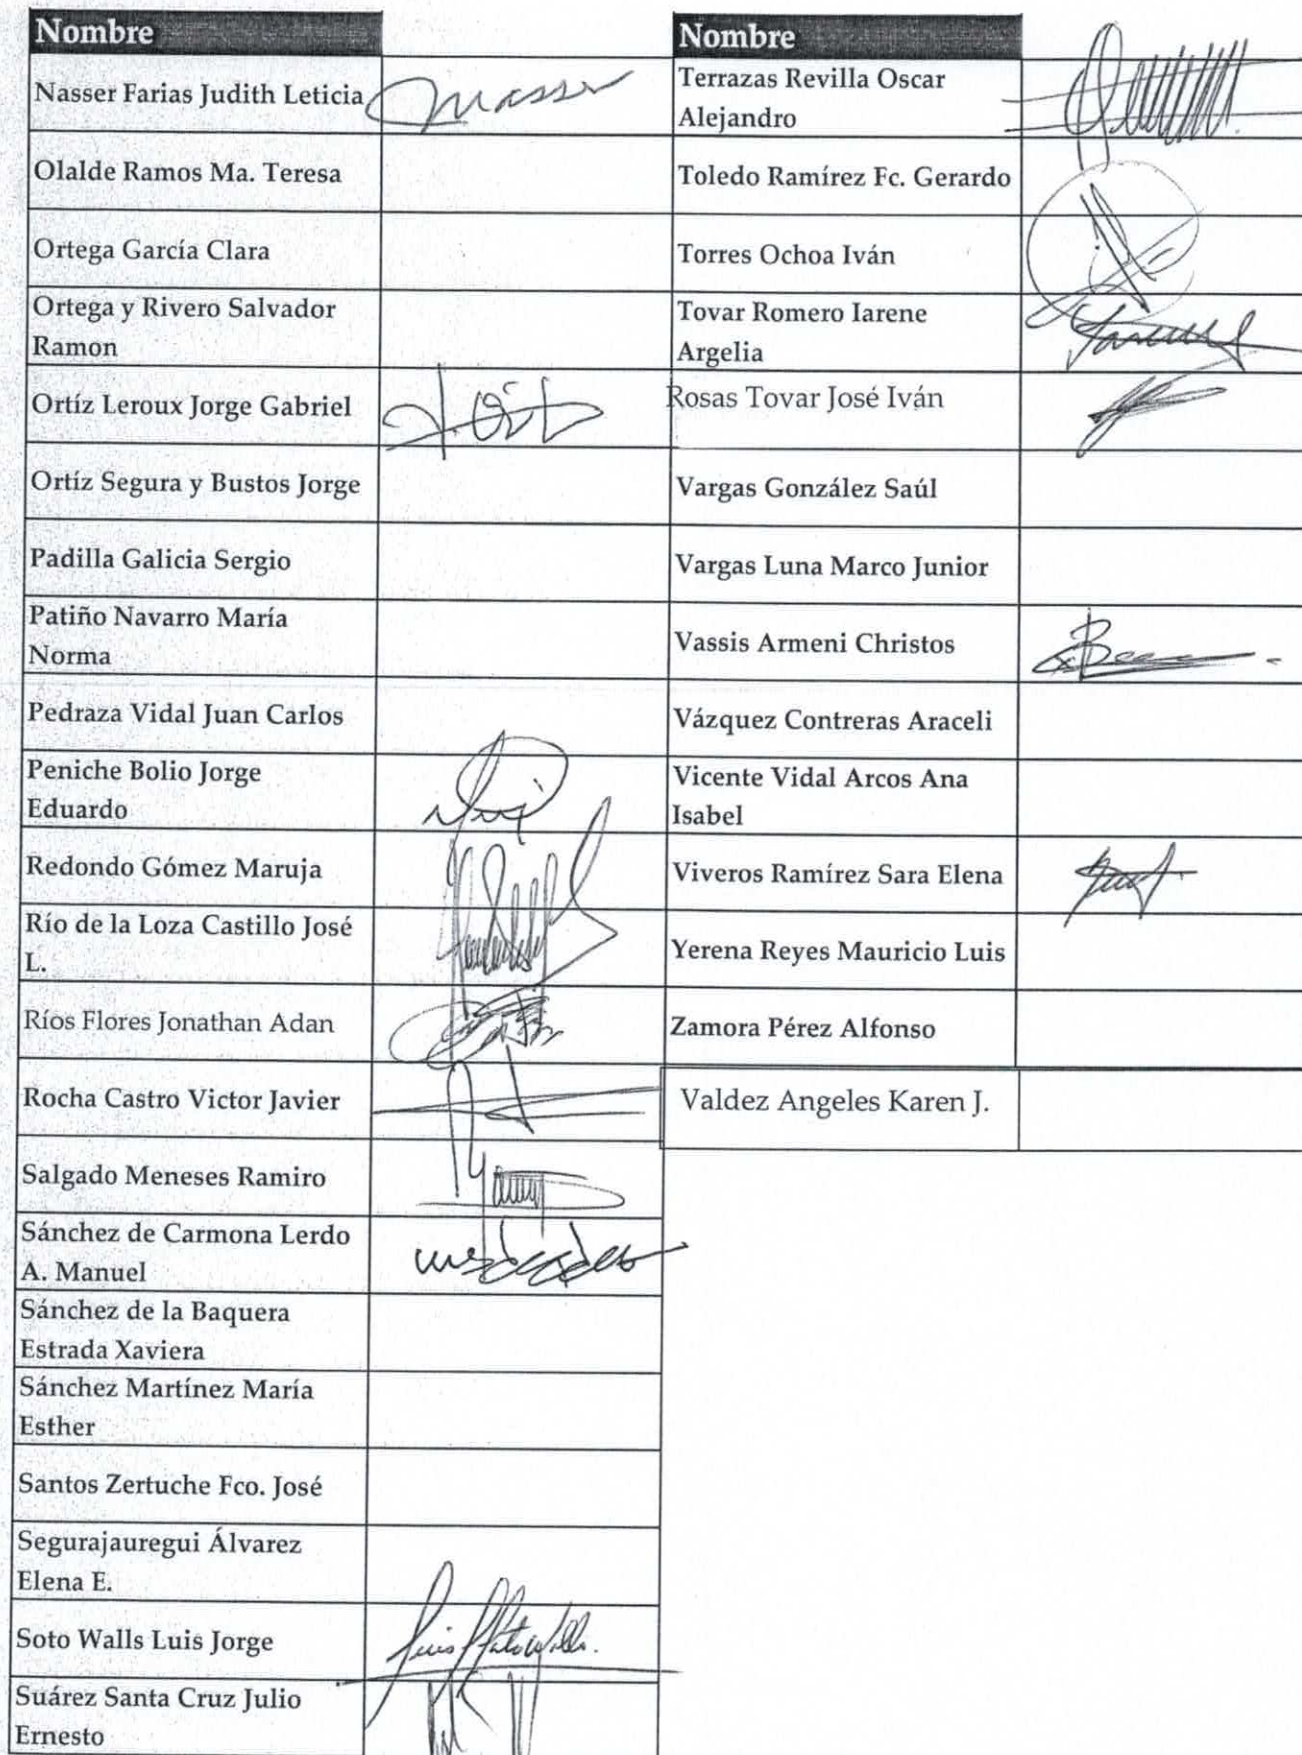 Nombre
Nasser Farias Judith Leticia
Nasser
Olalde Ramos Ma. Teresa
Ortega García Clara
Ortega y Rivero Salvador
Ramon
Ortíz Leroux Jorge Gabriel
Ortíz Segura y Bustos Jorge
Padilla Galicia Sergio
Patiño Navarro María
Norma
Pedraza Vidal Juan Carlos
Peniche Bolio Jorge
Eduardo
Redondo Gómez Maruja
Río de la Loza Castillo José
L.
Ríos Flores Jonathan Adan
Rocha Castro Victor Javier
Salgado Meneses Ramiro
Sánchez de Carmona Lerdo
A. Manuel
Sánchez de la Baquera
Estrada Xaviera
Sánchez Martínez María
Esther
Santos Zertuche Fco. José
Segurajauregui Álvarez
Elena E.
Soto Walls Luis Jorge
Luis Soto Walls.
Suárez Santa Cruz Julio
Ernesto
Nombre
Terrazas Revilla Oscar
Alejandro
Toledo Ramírez Fc. Gerardo
Torres Ochoa Iván
Tovar Romero Iarene
Argelia
Rosas Tovar José Iván
Vargas González Saúl
Vargas Luna Marco Junior
Vassis Armeni Christos
Vázquez Contreras Araceli
Vicente Vidal Arcos Ana
Isabel
Viveros Ramírez Sara Elena
Yerena Reyes Mauricio Luis
Zamora Pérez Alfonso
Valdez Angeles Karen J.